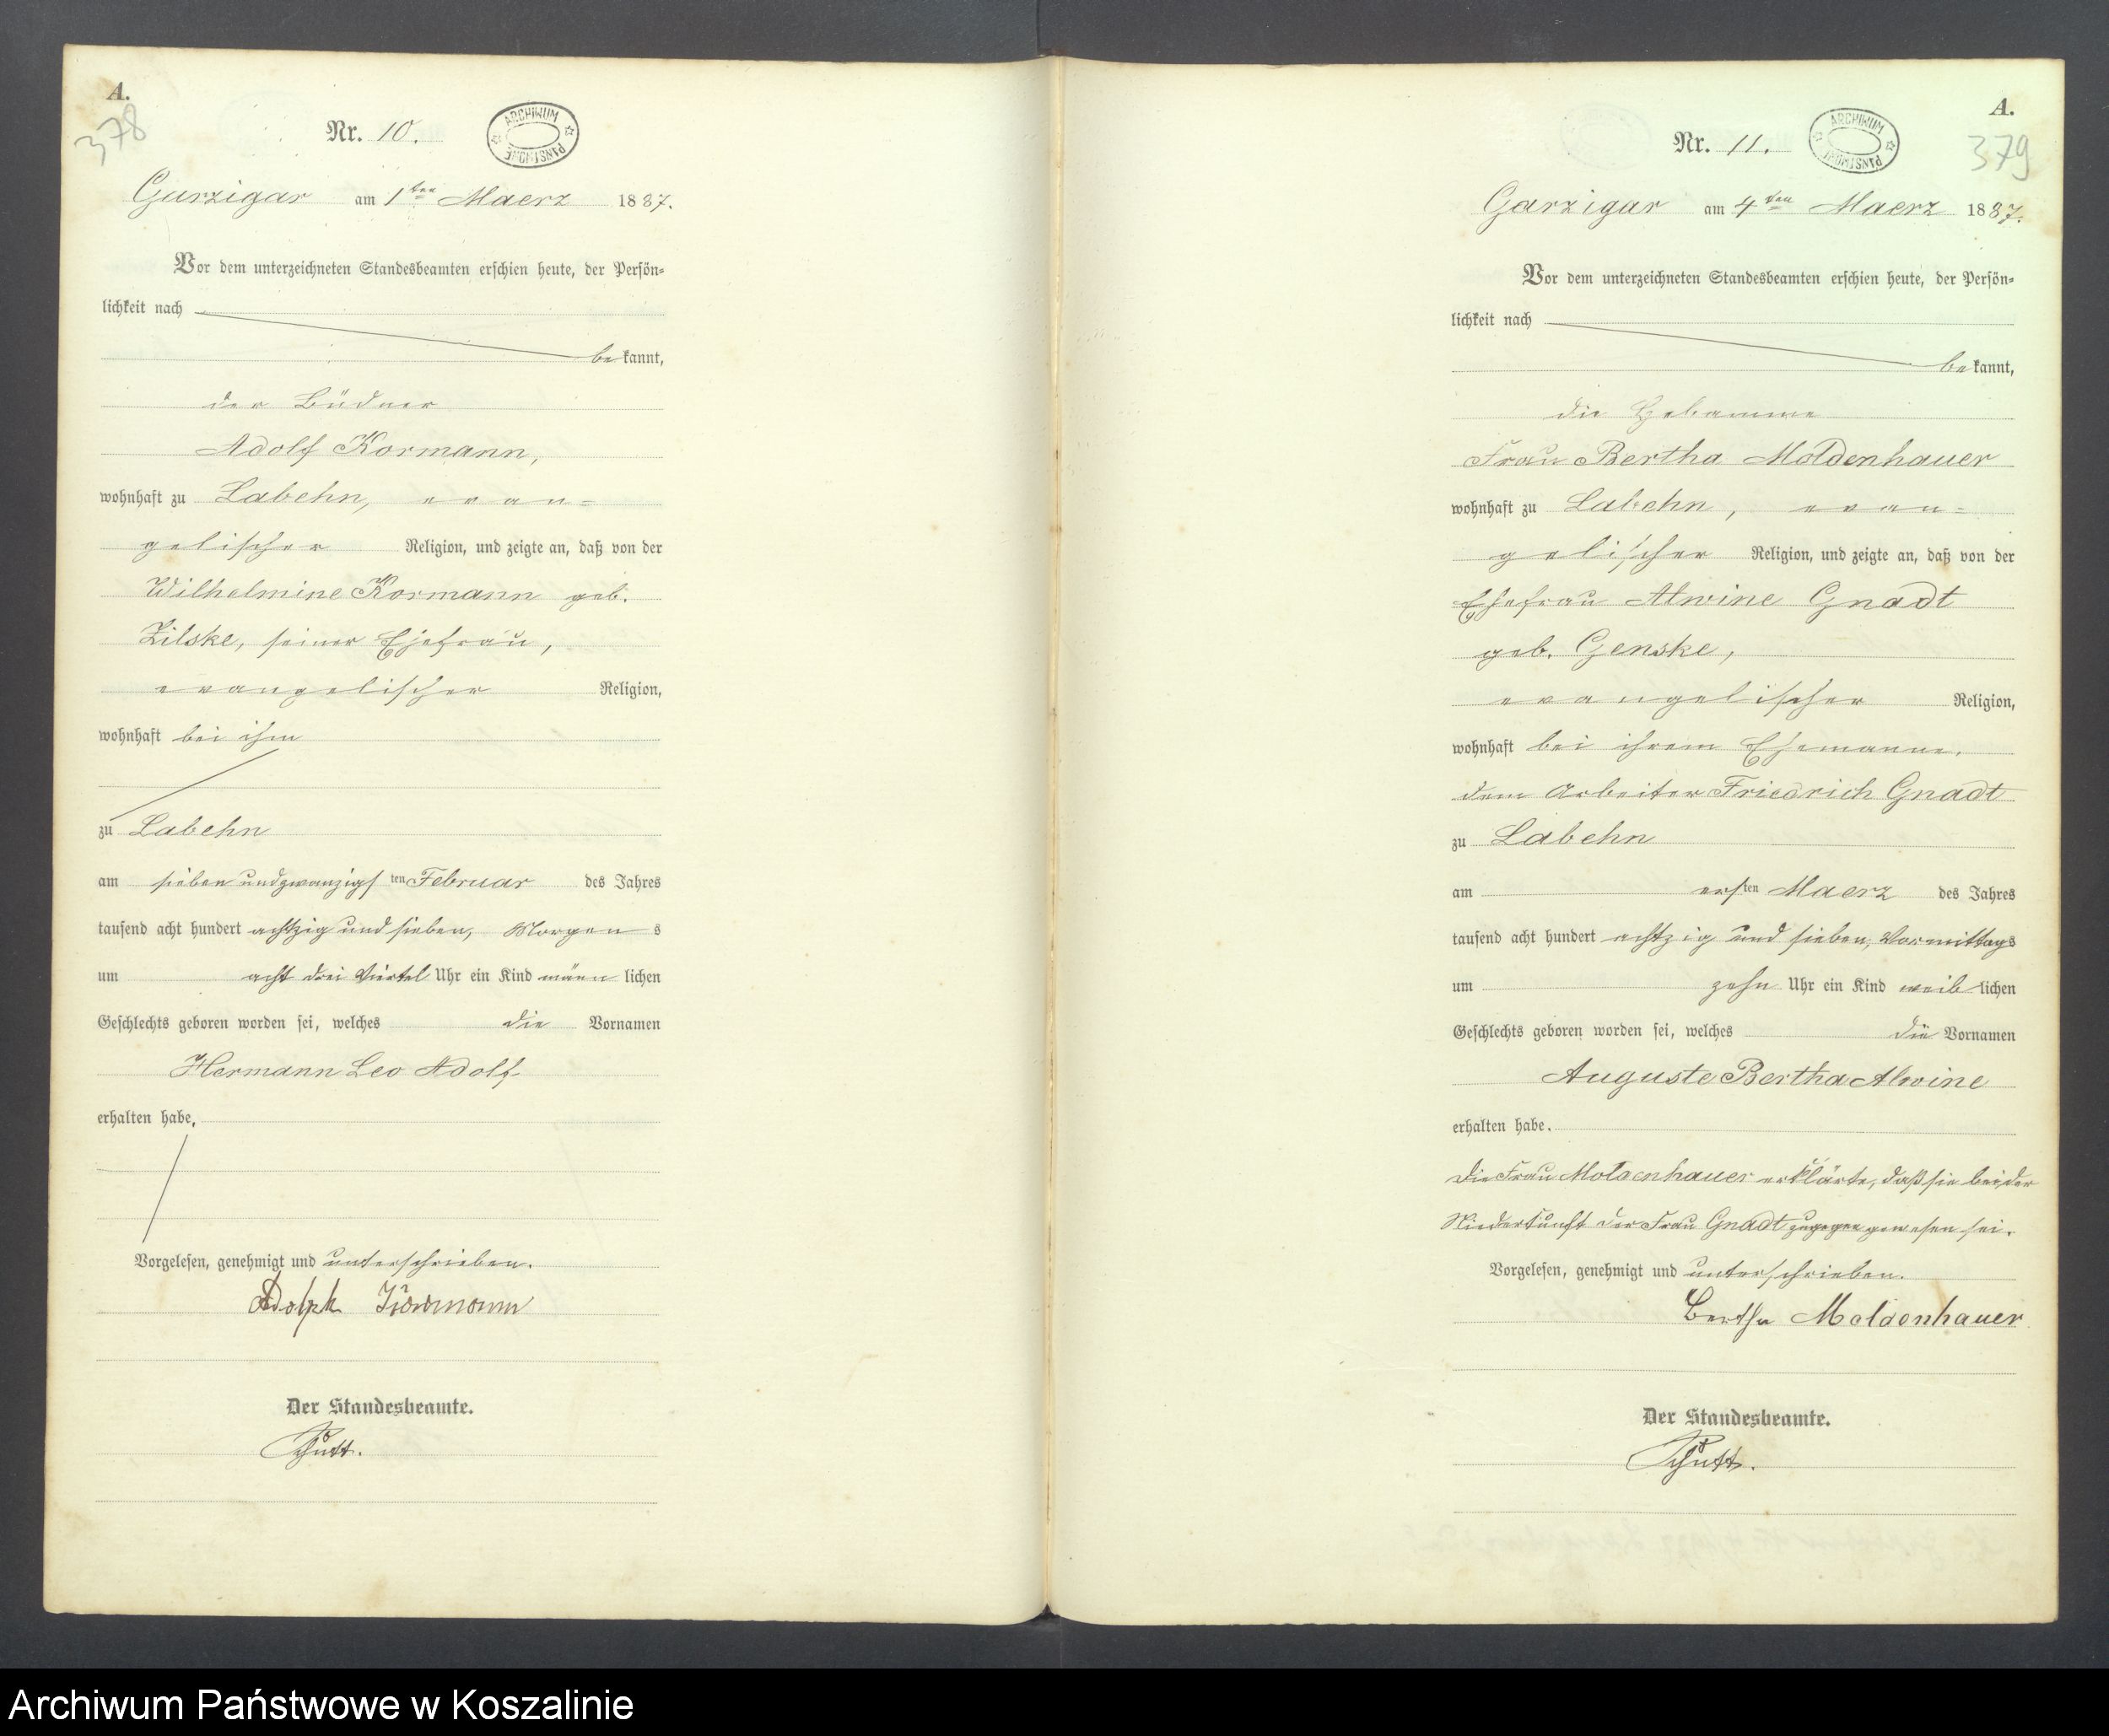 A.
378
Nr. 10.
ARCHIWUM PAŃSTWOWE
Garzigar am 1ten Maerz 1887.
Vor dem unterzeichneten Standesbeamten erschien heute, der Persön-
lichkeit nach
bekannt,
der Büdner
Adolf Kormann,
wohnhaft zu Labehn, evan-
gelischer Religion, und zeigte an, daß von der
Wilhelmine Kormann geb.
Zilske, seiner Ehefrau,
evangelischer Religion,
wohnhaft bei ihm
zu Labehn
am sieben undzwanzigsten Februar des Jahres
tausend acht hundert achtzig und sieben, Morgens
um acht drei Viertel Uhr ein Kind männlichen
Geschlechts geboren worden sei, welches die Vornamen
Hermann Leo Adolf
erhalten habe.
Vorgelesen, genehmigt und unterschrieben.
Adolph Kormann
Der Standesbeamte.
A.
379
Nr. 11.
ARCHIWUM PAŃSTWOWE
Garzigar am 4ten Maerz 1887.
Vor dem unterzeichneten Standesbeamten erschien heute, der Persön-
lichkeit nach
bekannt,
die Hebamme
Frau Bertha Moldenhauer
wohnhaft zu Labehn, evan-
gelischer Religion, und zeigte an, daß von der
Ehefrau Alwine Gnadt
geb. Genske,
evangelischer Religion,
wohnhaft bei ihrem Ehemanne,
dem Arbeiter Friedrich Gnadt
zu Labehn
am ersten Maerz des Jahres
tausend acht hundert achtzig und sieben, Vormittags
um zehn Uhr ein Kind weiblichen
Geschlechts geboren worden sei, welches die Vornamen
Auguste Bertha Alwine
erhalten habe.
Die Frau Moldenhauer erklärte, daß sie bei der
Niederkunft der Frau Gnadt zugegen gewesen sei.
Vorgelesen, genehmigt und unterschrieben.
Bertha Moldenhauer
Der Standesbeamte.
Archiwum Państwowe w Koszalinie